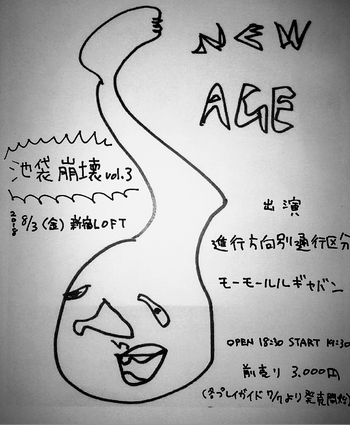 NEW
AGE
池袋崩壊 vol.3
2018 8/3 (金) 新宿LOFT
出演
進行方向別通行区分
モーモールルギャバン
OPEN 18:30 START 19:30
前売り 3.000円
(各プレイガイド 7/7より発売開始)